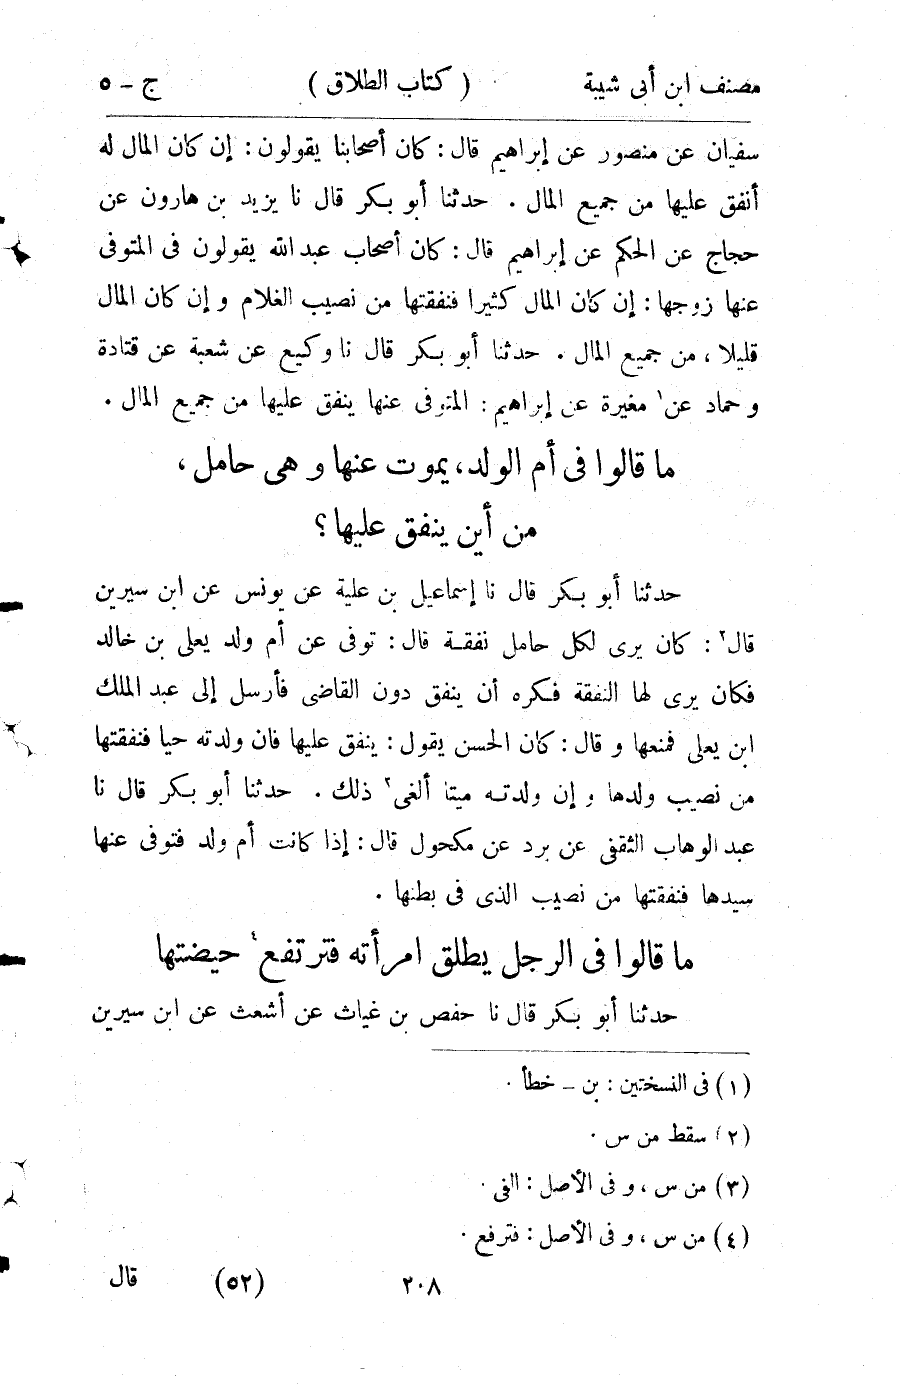 مصنف ابن أبى شيبة ( كتاب الطلاق ) ج – ٥
سفيان عن منصور عن إبراهيم قال : كان أصحابنا يقولون : إن كان المال له
أنفق عليها من جميع المال . حدثنا أبو بكر قال نا يزيد بن هارون عن
حجاج عن الحكم عن إبراهيم قال : كان أصحاب عبد الله يقولون فى المتوفى
عنها زوجها : إن كان المال كثيرا فنفقتها من نصيب الغلام و إن كان المال
قليلا ، من جميع المال . حدثنا أبو بكر قال نا وكيع عن شعبة عن قتادة
و حماد عن١ مغيرة عن إبراهيم : المتوفى عنها ينفق عليها من جميع المال .
ما قالوا فى أم الولد، يموت عنها و هى حامل ،
من أين ينفق عليها ؟
حدثنا أبو بكر قال نا إسماعيل بن علية عن يونس عن ابن سيرين
قال٢ : كان يرى لكل حامل نفقة قال : توفى عن أم ولد يعلى بن خالد
فكان يرى لها النفقة فكره أن ينفق دون القاضى فأرسل إلى عبد الملك
ابن يعلى فمنعها و قال : كان الحسن يقول : ينفق عليها فان ولدته حيا فنفقتها
من نصيب ولدها و إن ولدته ميتا ألغى٣ ذلك . حدثنا أبو بكر قال نا
عبد الوهاب الثقفى عن برد عن مكحول قال : إذا كانت أم ولد فتوفى عنها
سيدها فنفقتها من نصيب الذى فى بطنها .
ما قالوا فى الرجل يطلق امرأته فترتفع٤ حيضتها
حدثنا أبو بكر قال نا حفص بن غياث عن أشعث عن ابن سيرين
(١) فى النسختين : بن – خطأ .
(٢) سقط من س .
(٣) من س ، و فى الأصل : الفى .
(٤) من س ، و فى الأصل : فترفع .
٢٠٨ (٥٢) قال